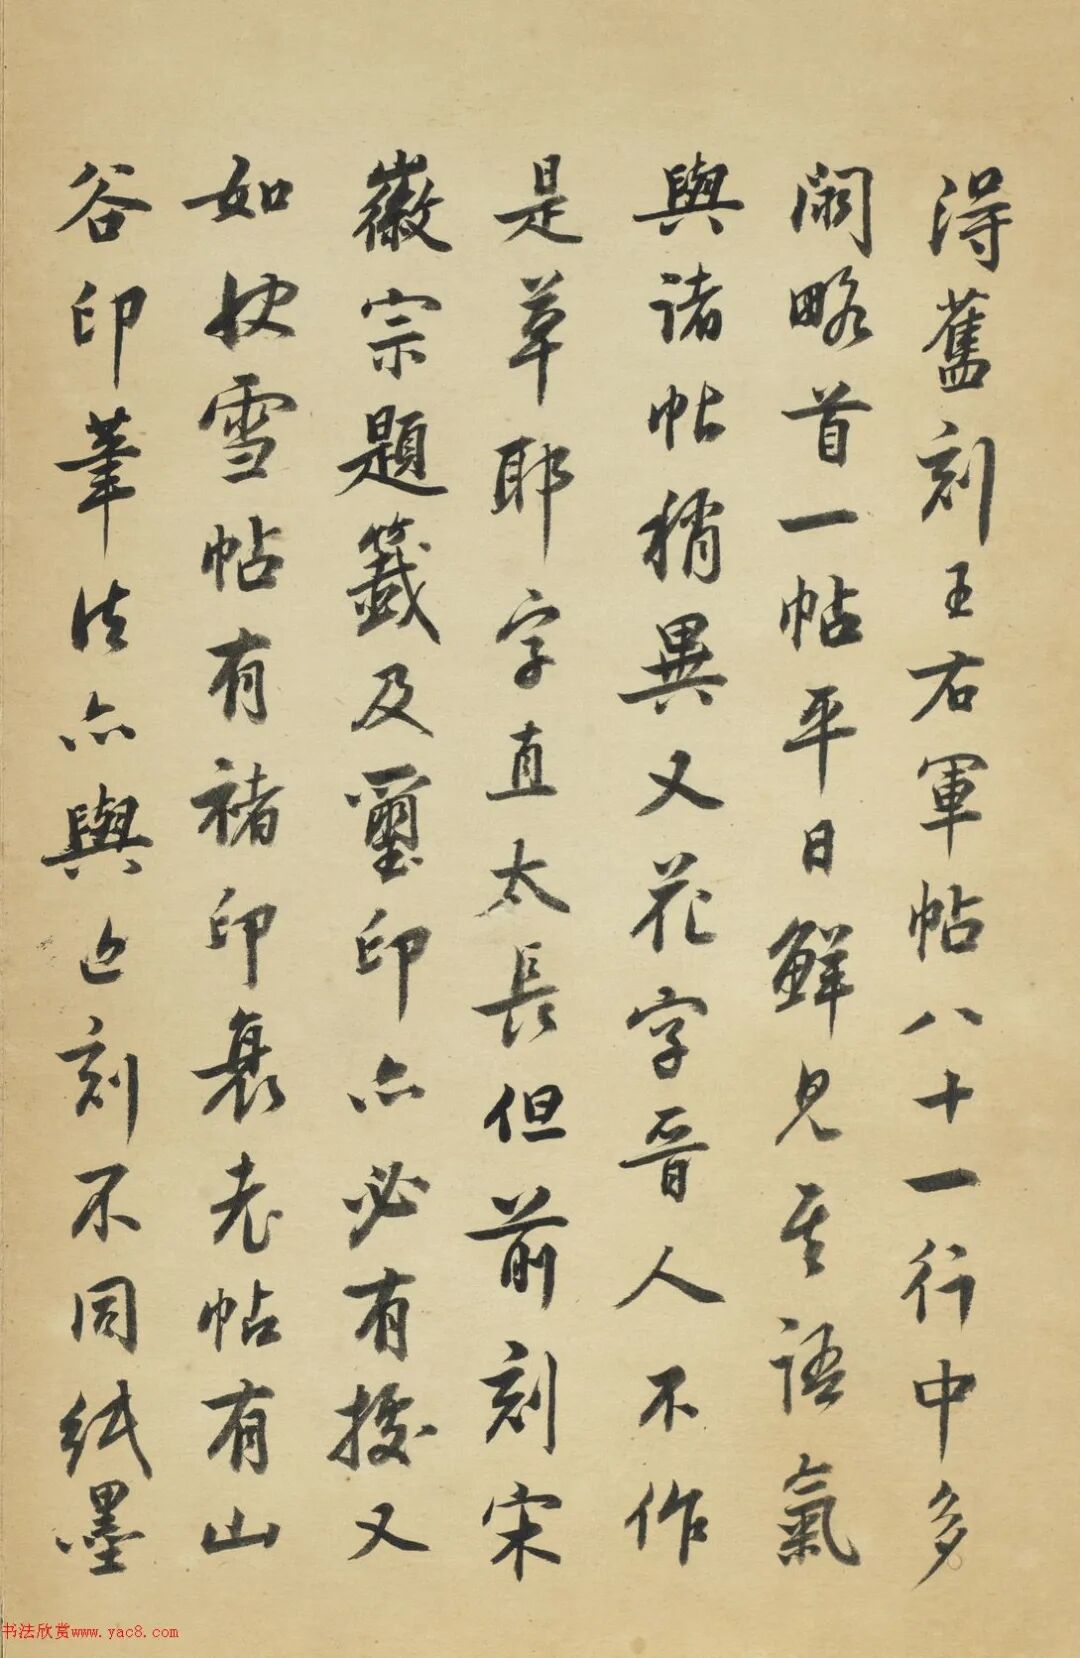 得舊刻王右軍帖八十一行中多
闕略首一帖平日鮮見其語氣
與諸帖稍異又花字晉人不作
是草耶字直太長但前刻宋
徽宗題籤及璽印亦必有據又
如快雪帖有褚印衰老帖有山
谷印筆法亦與近刻不同紙墨
书法欣赏www.yac8.com